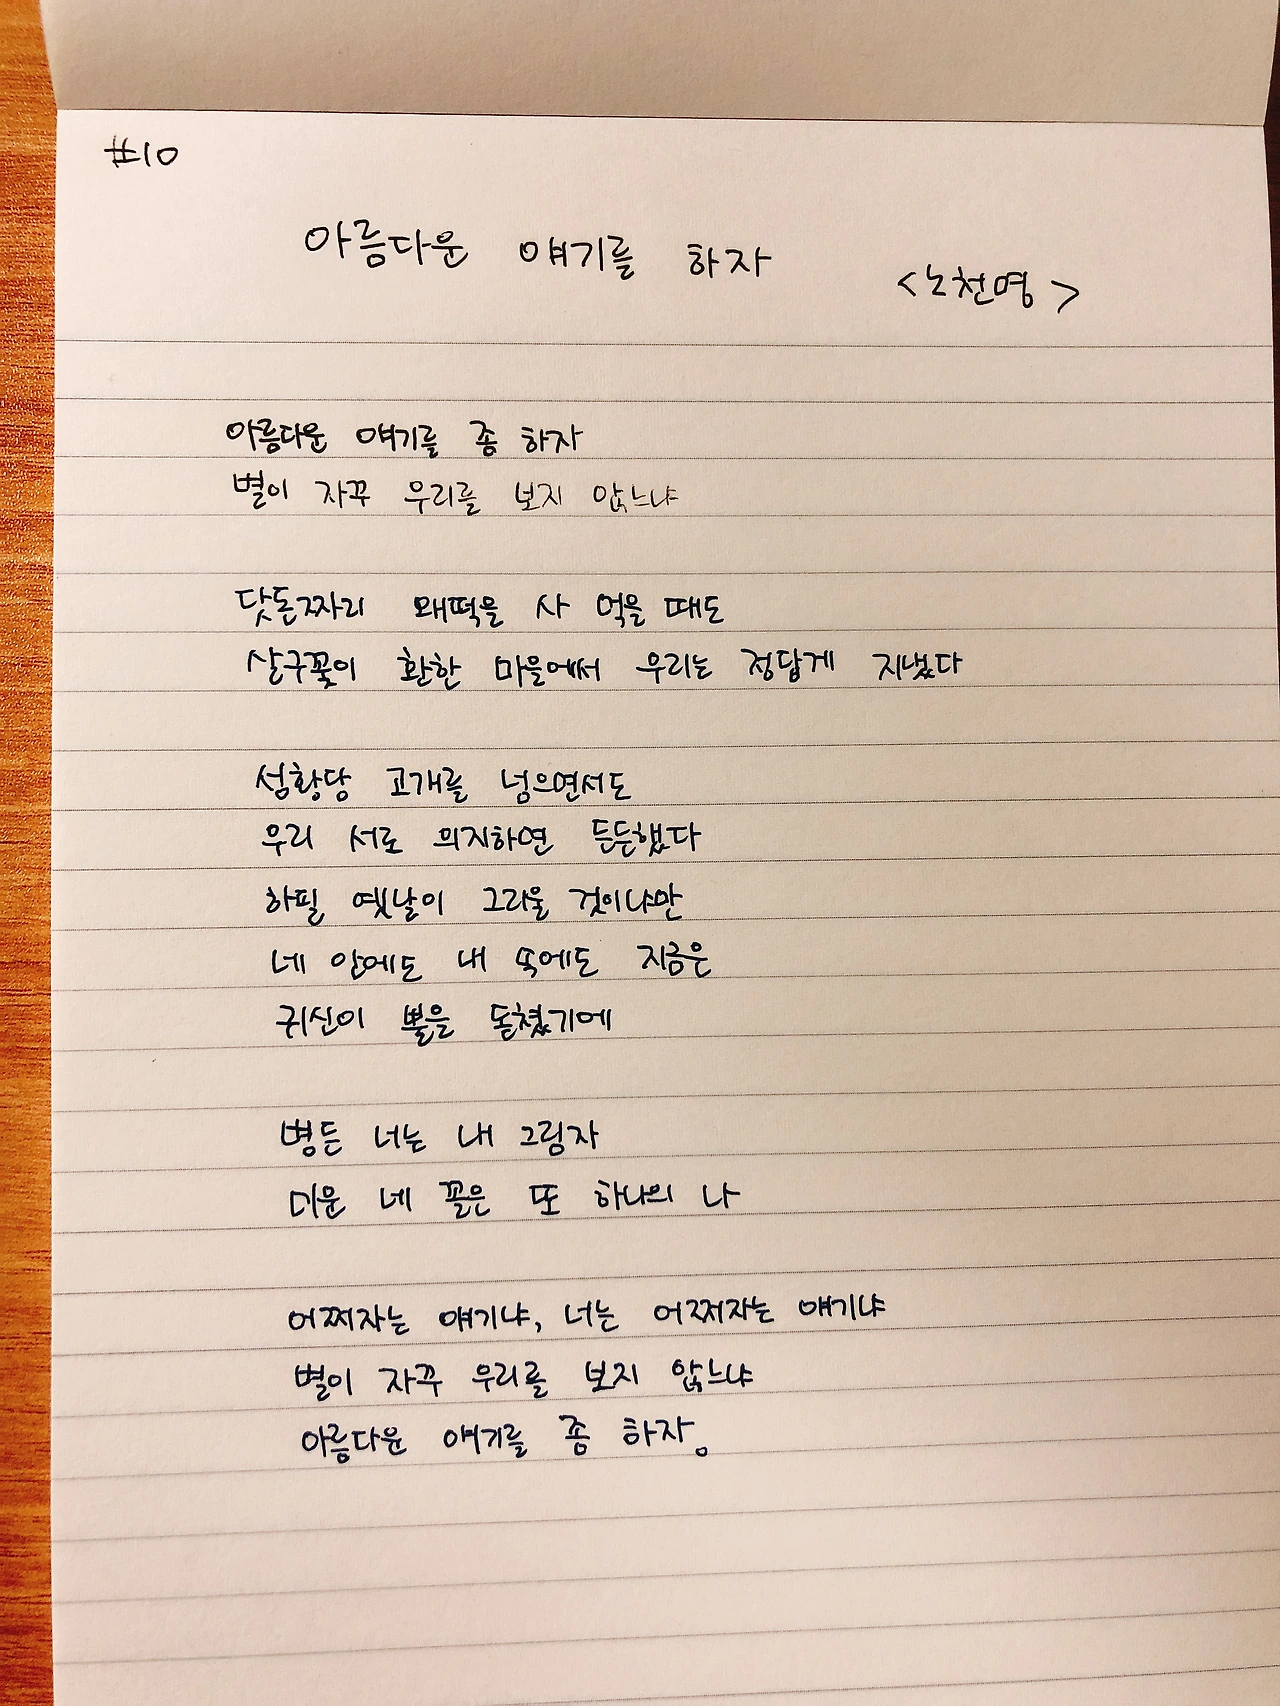 #10
아름다운 얘기를 하자
<노천명>
아름다운 얘기를 좀 하자
별이 자꾸 우리를 보지 않느냐
닷돈짜리 왜떡을 사 먹을 때도
살구꽃이 환한 마을에서 우리는 정답게 지냈다
성황당 고개를 넘으면서도
우리 서로 의지하면 든든했다
하필 옛날이 그리울 것이냐만
네 안에도 내 속에도 지금은
귀신이 뿔을 돋쳤기에
병든 너는 내 그림자
미운 네 꼴은 또 하나의 나
어쩌자는 얘기냐, 너는 어쩌자는 얘기냐
별이 자꾸 우리를 보지 않느냐
아름다운 얘기를 좀 하자.